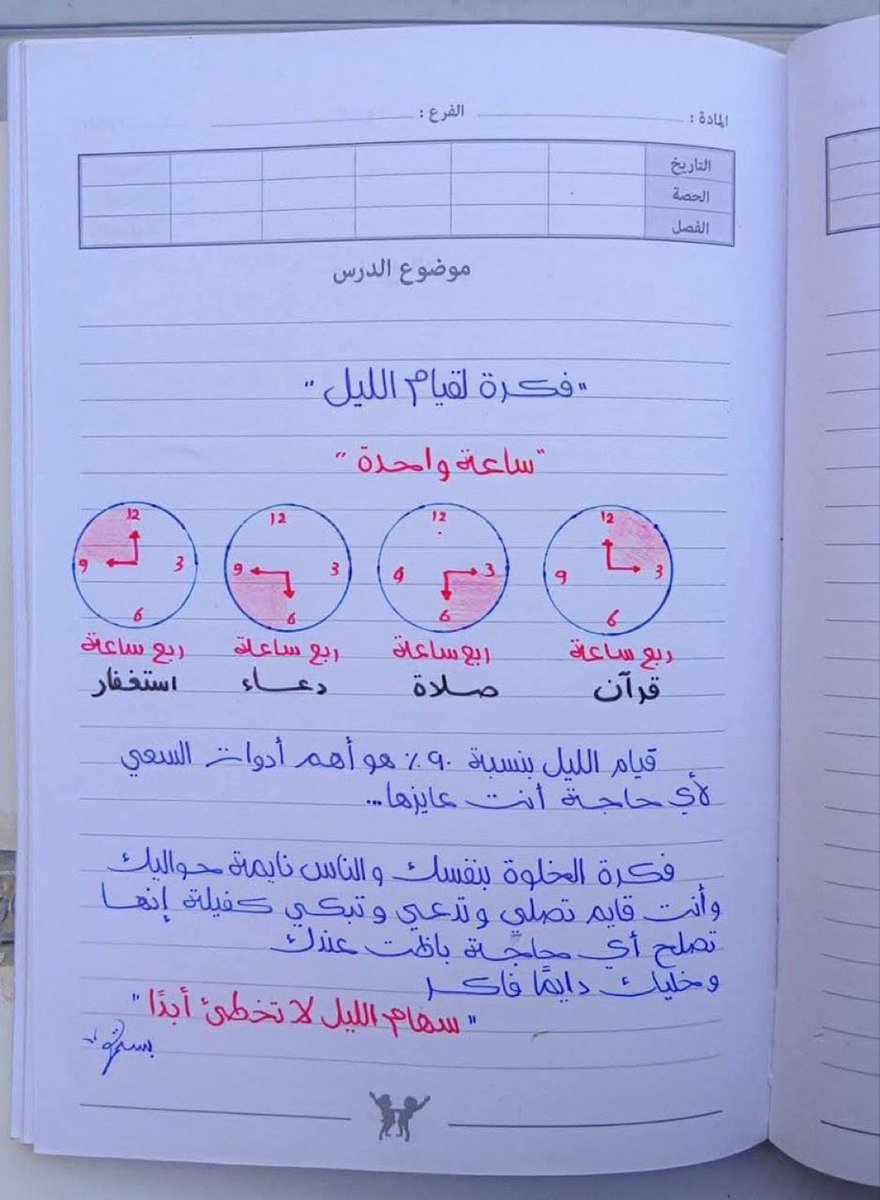 المادة : الفرع :
التاريخ
الحصة
الفصل
موضوع الدرس
"فكرة لقيام الليل"
"ساعة واحدة"
12 3 6 9
12 3 6 9
12 3 6 9
12 3 6 9
ربع ساعة ربع ساعة ربع ساعة ربع ساعة
قرآن صلاة دعاء استغفار
قيام الليل بنسبة ٩٠٪ هو أهم أدوات السعي
لأي حاجة أنت عايزها...
فكرة الخلوة بنفسك والناس نايمة حواليك
وأنت قايم تصلي وتدعي وتبكي كفيلة إنها
تصلح أي حاجة باظت عندك
وخليك دايمًا فاكر
"سهام الليل لا تخطئ أبدًا"